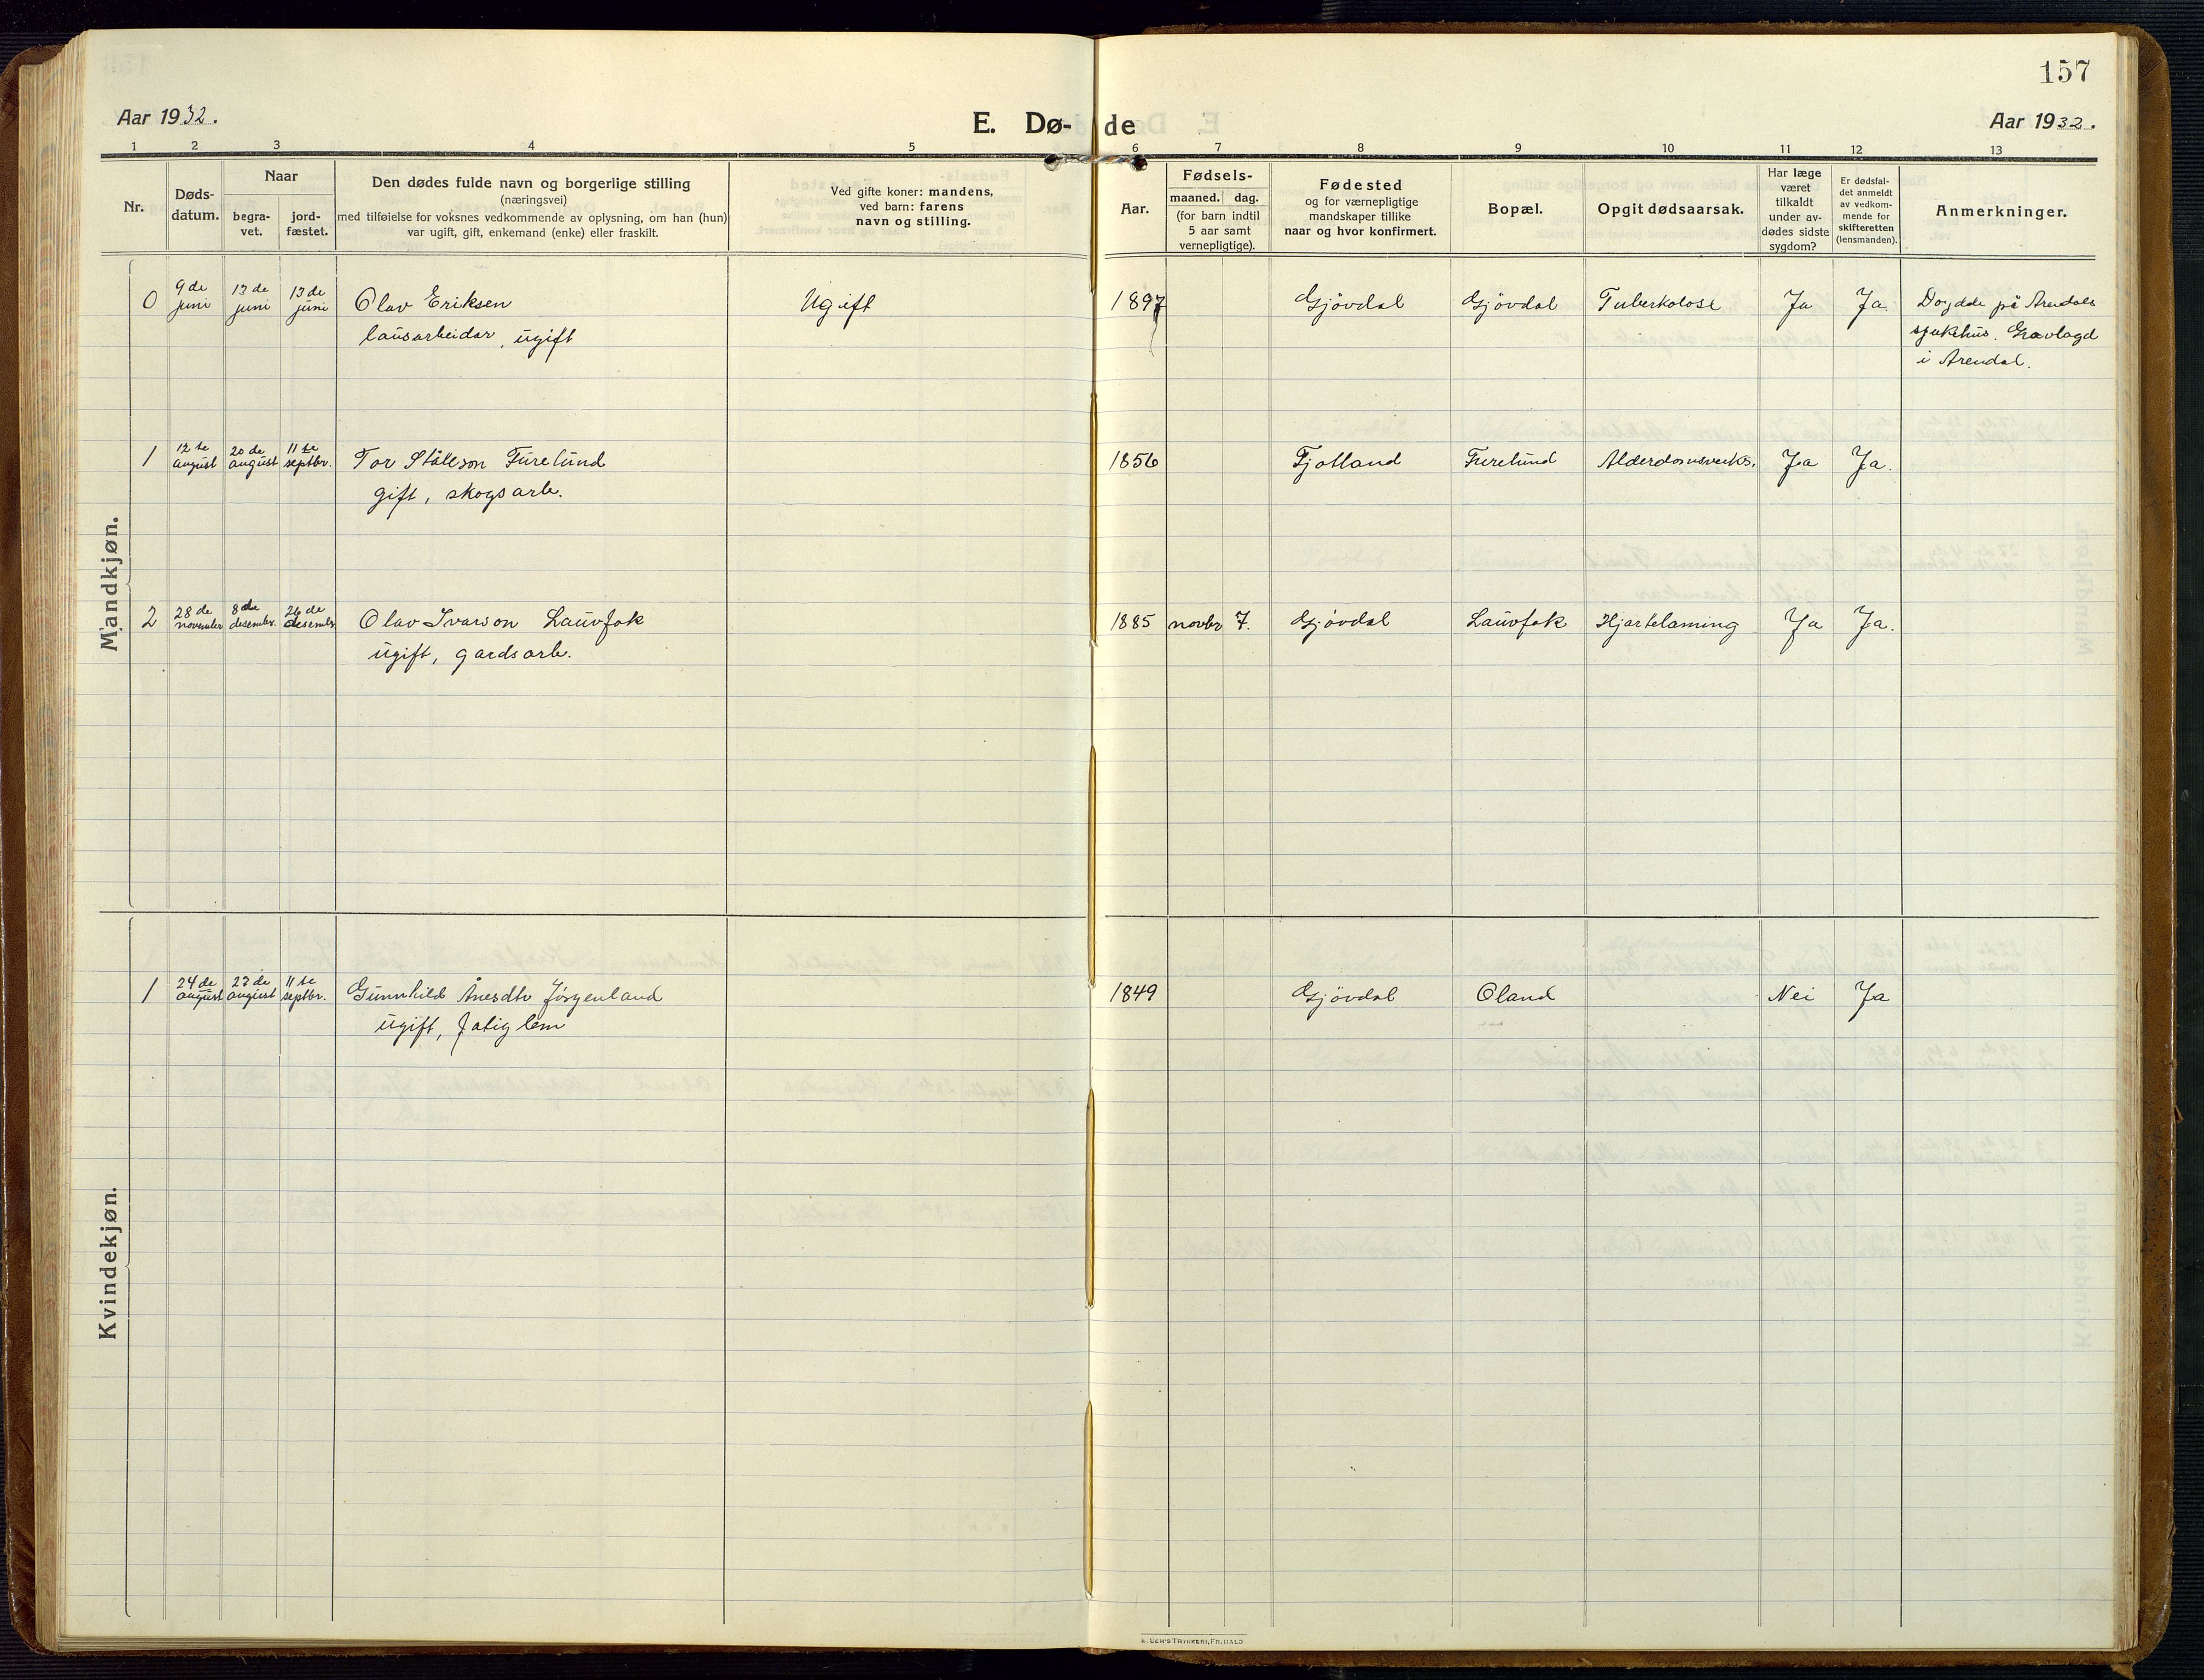 157
Aar 1932.
E. Dø-de
Aar 1932.
1 2 3 4 5 6 7 8 9 10 11 12 13
Nr.
Døds-
datum.
Naar
begra-
vet.
jord-
fæstet.
Den dødes fulde navn og borgerlige stilling
(næringsvei)
med tilføielse for voksnes vedkommende av oplysning, om han (hun)
var ugift, gift, enkemand (enke) eller fraskilt.
Ved gifte koner: mandens,
ved barn: farens
navn og stilling.
Aar.
Fødsels-
maaned. dag.
(for barn indtil
5 aar samt
vernepligtige).
Fødested
og for værnepligtige
mandskaper tillike
naar og hvor konfirmert.
Bopæl.
Opgit dødsaarsak.
Har læge
været
tilkaldt
under av-
dødes sidste
sygdom?
Er dødsfal-
det anmeldt
av vedkom-
mende for
skifteretten
(lensmanden).
Anmerkninger.
Mandkjøn.
0 9de juni 13de juni 13de juni Olav Eriksen Ugift 1897 Gjövdal Gjövdal Tuberkolose Ja Ja. Döydde på Arendals
lausarbeidar, ugift sjukehus. Gravlagd
i Arendal.
1 12te august 20de august 11te septbr. Tor Ståleson Furelund 1856 Fjotland Furelund Ja Ja.
gift, skogsarb.
2 28de november 8de desember. 26de desember Olav Ivarson Lauvfok 1885 novbr 7. Gjövdal Lauvfok Hjartelaming Ja Ja.
ugift, gardsarb.
Kvindekjøn.
1 24de august 27de august 11te septbr. Gunnhild Ånesdtr Jörgenland 1849 Gjövdal Öland Nei Ja
ugift, fatiglem